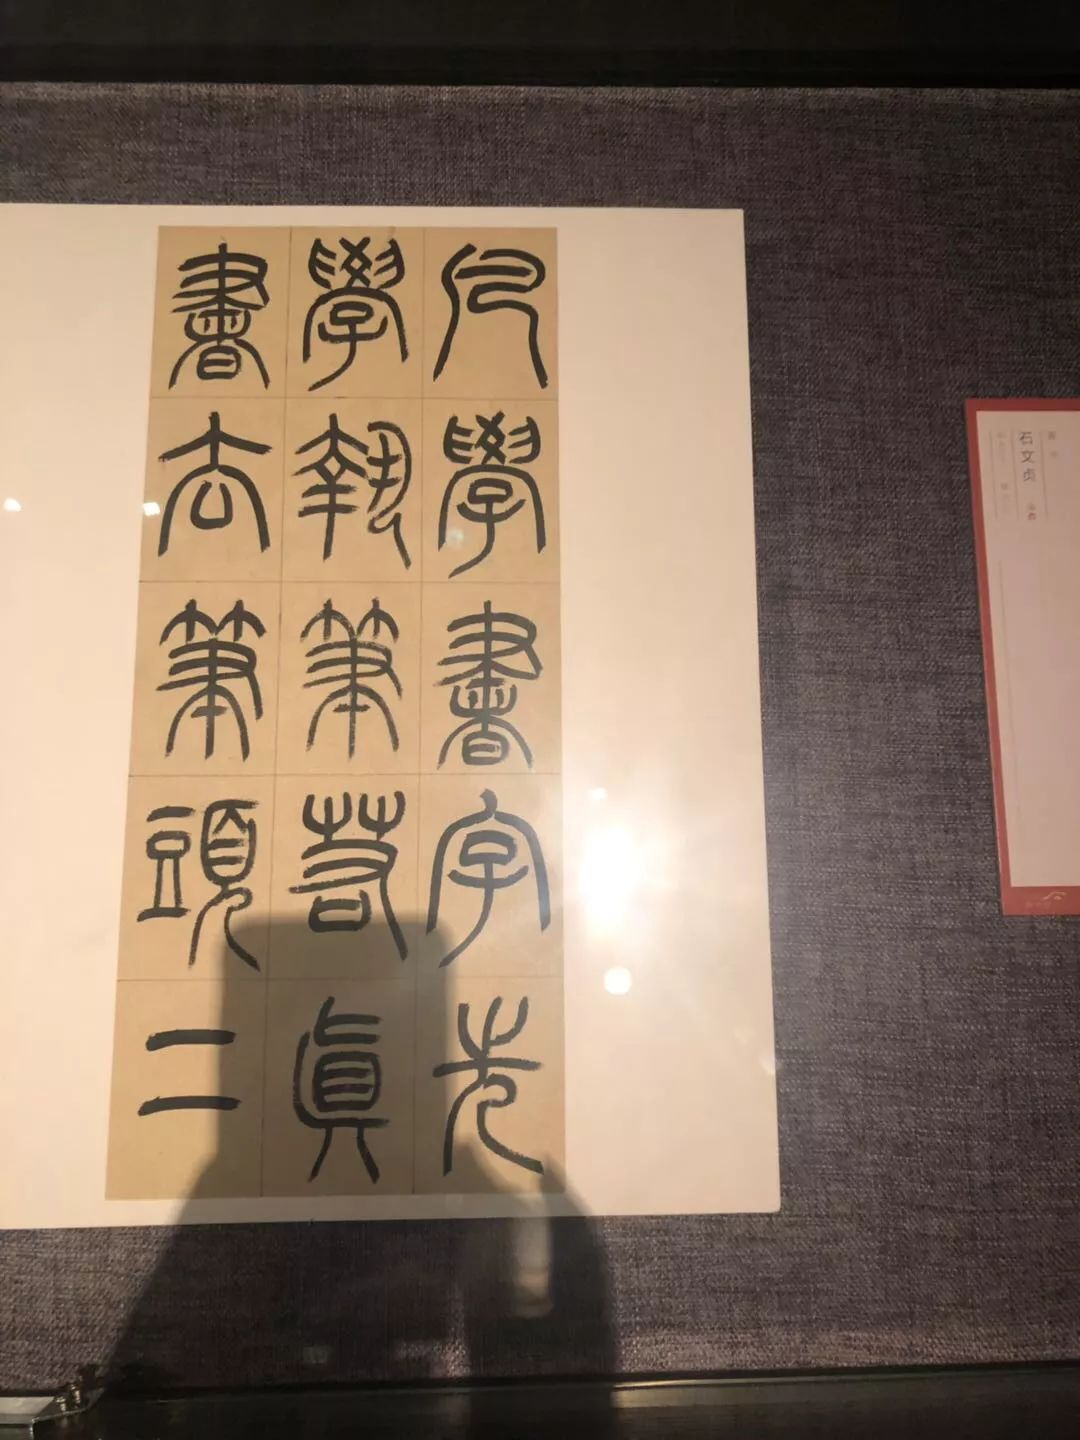 凡學書字先
學執筆若眞
書去筆頭二
石文贞